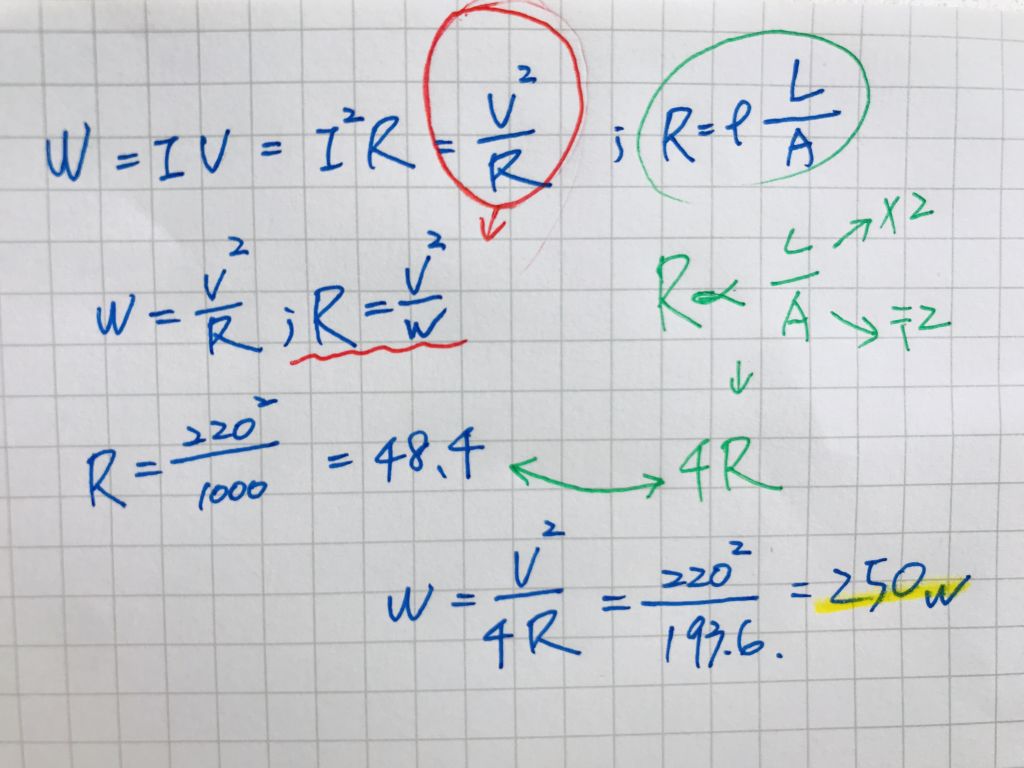 W = IV = I²R = V²/R ; R = ρ L/A
W = V²/R ; R = V²/W
R ∝ L/A ↗ ×2 ↘ ÷2
↓
R = 220²/1000 = 48.4 ↔ 4R
W = V²/4R = 220²/193.6. = 250W